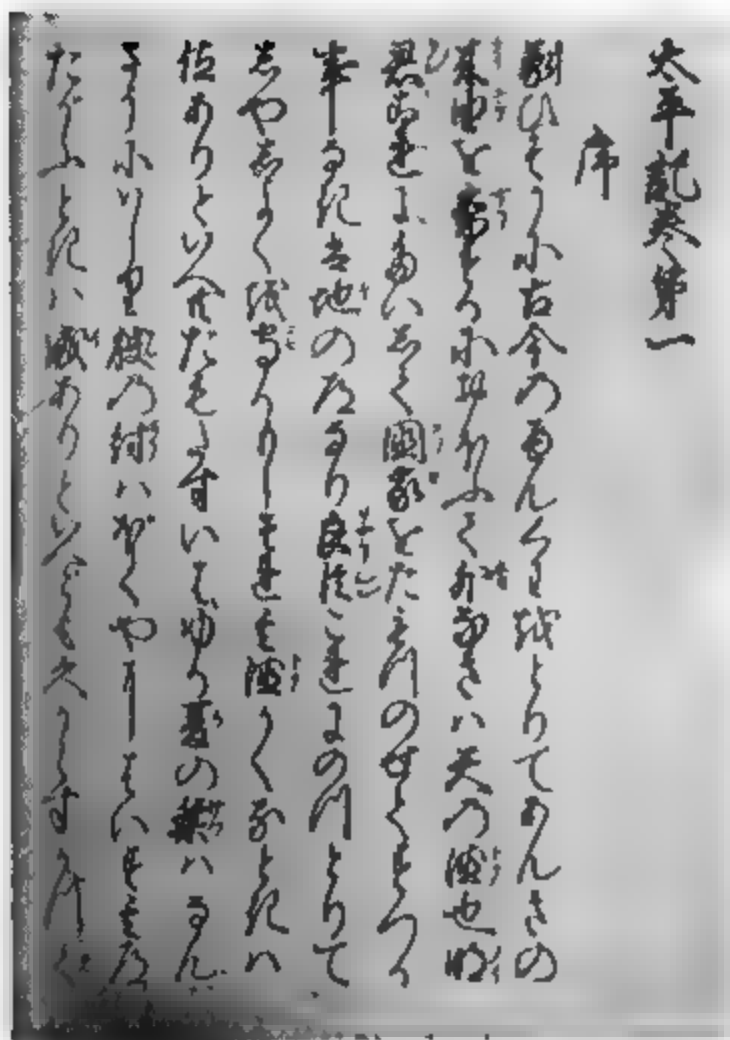 太平記巻第一
序
蒙ひそかに古今のへんくわ越とりてあんきの
来由を察するにおほふて外なきハ天の徳也明
君これにていして國家をたもつのせてすつる
事なきは地の道なり良臣これにのつとりて
しやしよく越守るもしそれ其徳かくるときハ
位ありといへ共たもたすいはゆる夏の桀ハなん
さうにハしり殷の紂ハぼくやにはいす其道
たかふときハ威ありといへとも久しからすかつて